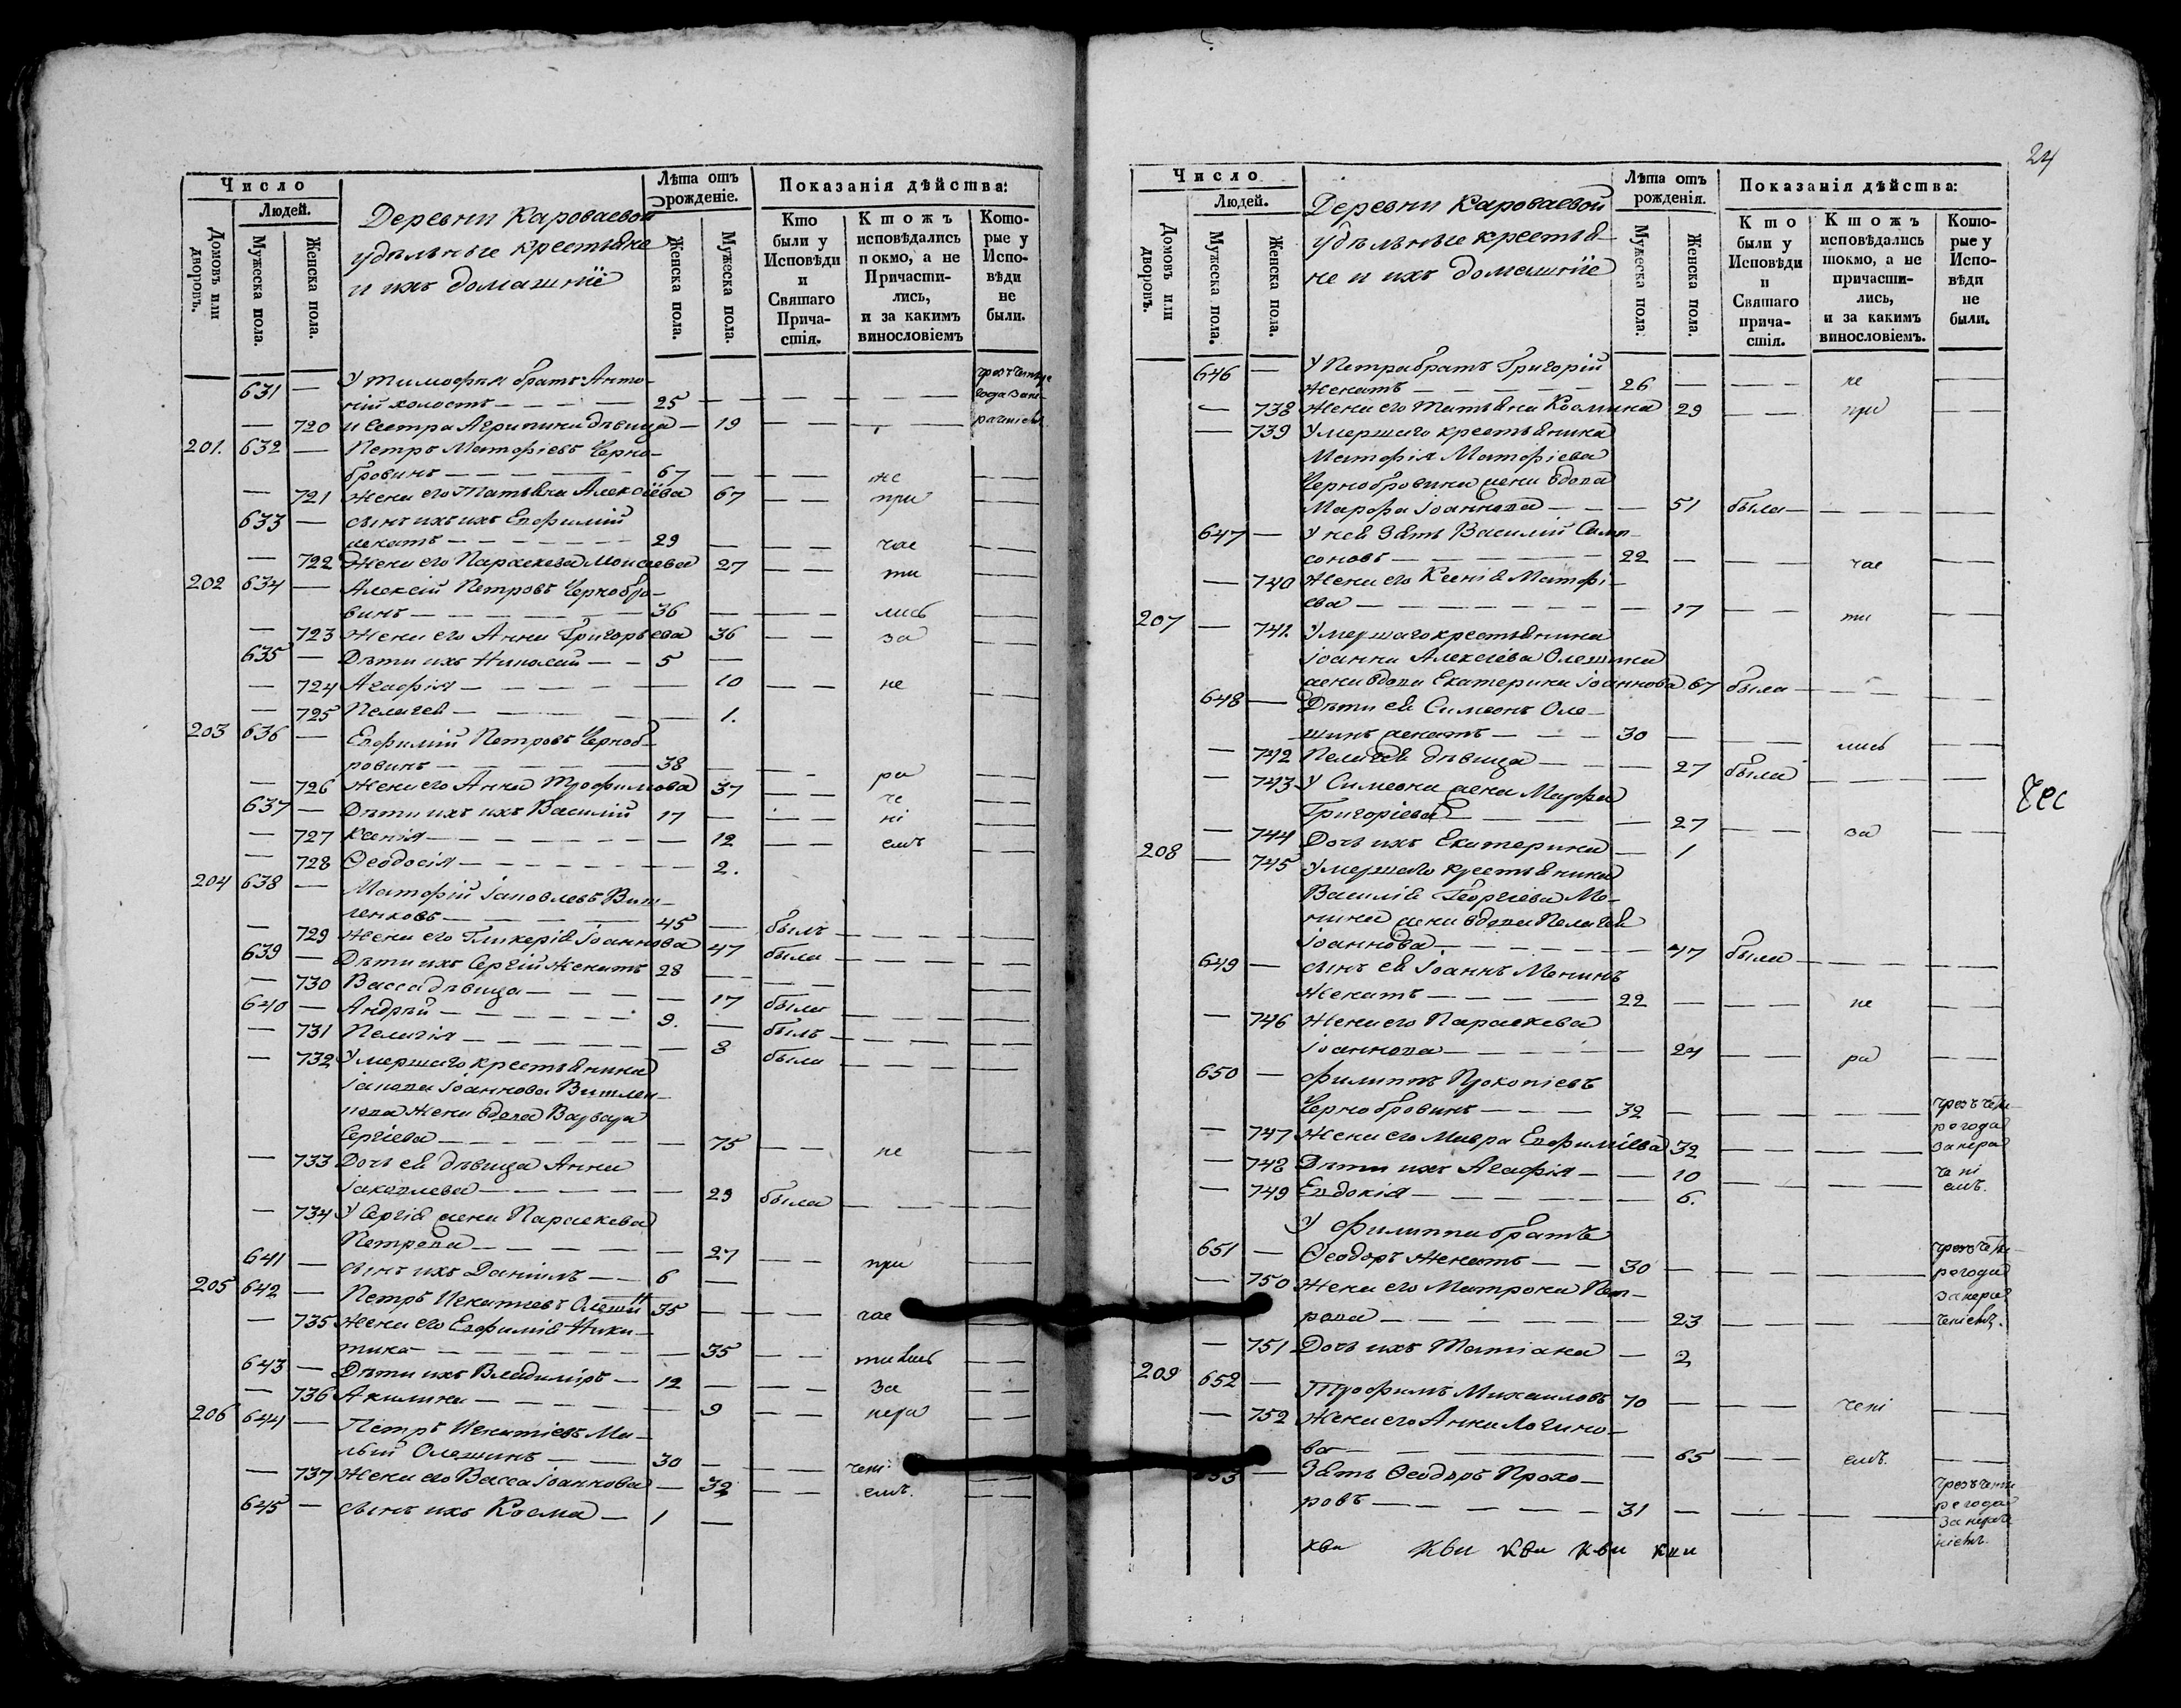 Число
Людей.
Домовъ или дворовъ.
Мужеска пола.
Женска пола.
Деревни Кароваевой
удѣльные крестьяне
и ихъ домашнїе
Лѣта отъ
рожденіе.
Женска пола.
Мужеска пола.
Показанія дѣйства:
Кто
были у
Исповѣди
и
Святаго
Прича-
стія.
Ктожъ
исповѣдались
покмо, а не
Причасти-
лись,
и за какимъ
винословіемъ
Кото-
рые у
Испо-
вѣди
не
были.
631 — У Тимофея братъ Анто-
ній холостъ — 25
— 720 и сестра Агрипина дѣвица — 19
201. 632 — Петръ Матфіевъ Черно-
бровинъ — 67 не
— 721 Жена его Татьяна Алексіева 67 при
633 — сынъ ихъ Евфимій
женатъ — 29 час
— 722 Жена его Параскева Моисеева 27 ти
202 634 — Алексій Петровъ Чернобро-
винъ — 36 лись
— 723 Жена его Анна Григорьева 36 за
635 — Дѣти ихъ Николай — 5
— 724 Агафія — 10 не
— 725 Пелагея — 1.
203 636 — Евфимій Петровъ Черноб-
ровинъ — 38 ра
— 726 Жена его Анна Трофимова 37 че
637 — Дѣти ихъ Василій 17 ні
— 727 Ксенія — 12 емъ
— 728 Ѳеодосія — 2.
204 638 — Матфій Іаковлевъ
45 былъ
— 729 Жена его Гликерія Іоаннова 47 была
639 — Дѣти ихъ Сергій женатъ 28
— 730 Васса дѣвица — 17 была
640 — Андрей — 9. былъ
— 731 Пелагія — 8 была
— 732 Умершаго крестьянина
Іакова Іоаннова
жена вдова Варвара
Сергіева — 75 не
— 733 Дочь ея дѣвица Анна
Іаковлева — 29 была
— 734 У Сергія жена Параскева
Петрова — 27 при
641 — сынъ ихъ Даніилъ — 6
205 642 — Петръ Игнатіевъ 35 час
— 735 Жена его Евфимія Ники-
тина — 35 тились
643 — Дѣти ихъ Владиміръ — 12 за
— 736 Акилина — 9 нера
206 644 — Петръ Игнатіевъ Ма-
лый Олешинъ — 30 чені
— 737 Жена его Васса Іоаннова — 32 емъ.
645 — сынъ ихъ Косма — 1
24
Число
Людей.
Домовъ или дворовъ.
Мужеска пола.
Женска пола.
Деревни Кароваевой
удѣльные крестья-
не и ихъ домашнїе
Лѣта отъ
рожденія.
Мужеска пола.
Женска пола.
Показанія дѣйства:
Кто
были у
Исповѣди
и
Святаго
прича-
стія.
Ктожъ
исповѣдались
токмо, а не
причасти-
лись,
и за какимъ
винословіемъ.
Кото-
рые у
Испо-
вѣди
не
были.
646 — У Петра братъ Григорій
женатъ — 26 не
— 738 Жена его Татьяна Космина 29 при
— 739 Умершаго крестьянина
Матфія Матфіева
Чернобровина жена вдова
Марфа Іоаннова — 51 была
647 — У нея зять Василій Самп-
соновъ — 22 час
— 740 Жена его Ксенія Матфі-
ева — 17 ти
207 — 741. Умершаго крестьянина
Іоанна Алексіева Олешина
жена вдова Екатерина Іоаннова 67 была
648 — Дѣти ея Симеонъ Оле-
шинъ женатъ — 30 лись
— 742 Пелагея дѣвица — 27 была
— 743 У Симеона жена Марфа
Григоріева — 27 за
— 744 Дочь ихъ Екатерина — 1
208 — 745 Умершаго крестьянина
Василія Георгіева Мо-
нина жена вдова Пелагея
Іоаннова — 47 была
649 — сынъ ея Іоаннъ Монинъ
женатъ — 22 не
— 746 Жена его Параскева
Іоаннова — 24 ра
650 — Филиппъ Прокопіевъ
Чернобровинъ — 32 чрезъ чети-
ре года
— 747 Жена его Мавра Евфиміева 32 за нера
— 748 Дѣти ихъ Агафія — 10 чені
— 749 Евдокія — 6. емъ.
У Филиппа братъ
651 — Ѳеодоръ женатъ — 30 чрезъ чети-
ре года
— 750 Жена его Матрона Пет- за нера
рова — 23 ченіемъ.
— 751 Дочь ихъ Татіана — 2
209 652 — Трофимъ Михаиловъ 70 чені
— 752 Жена его Анна Логино-
ва — 65 емъ.
653 — Зять Ѳеодоръ Прохо-
ровъ — 31 чрезъ чети-
ре года
за нера
ніемъ.